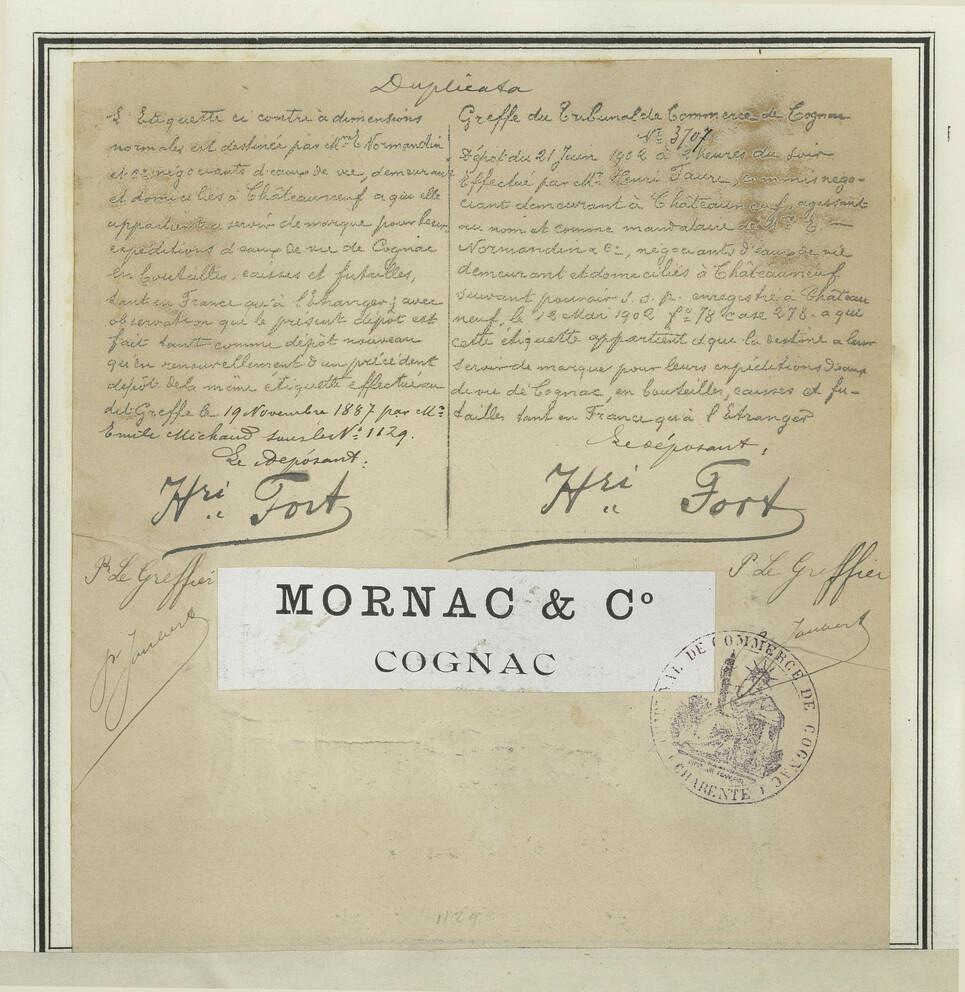 Duplicata
L'Etiquette ci contre à dimensions
normales est destinée par Mrs E Normandin
et Cie négociants d'eaux de vie, demeurant
et domiciliés à Châteauneuf a qui elle
appartient a servir de marque pour leurs
expéditions d'eaux de vie de Cognac
en bouteilles, caisses et futailles,
tant en France qu'à l'Etranger; avec
observation que le présent dépôt est
fait tant comme dépôt nouveau
qu'en renouvellement d'un précédent
dépôt de la même étiquette effectué au
dit Greffe le 19 Novembre 1887 par Mr
Emile Michaud sous le No 1129.
Le déposant:
Hri Fort
Pr Le Greffier
Greffe du Tribunal de Commerce de Cognac
No 3707
Dépôt du 21 Juin 1902 à 2 heures du soir
Effectué par Mr Henri Faure, commis négo-
ciant demeurant à Châteauneuf, agissant
au nom et comme mandataire de Mrs E
Normandin & Cie, négociants d'eaux de vie
demeurant et domiciliés à Châteauneuf
suivant pouvoir s.s.p. enregistré à Château
neuf, le 12 Mai 1902 fo 78 case 278. a qui
cette étiquette appartient et qui la destine a leur
servir de marque pour leurs expéditions d'eaux
de vie de Cognac, en bouteilles, caisses et fu-
tailles tant en France qu'à l'Etranger
Le déposant,
Hri Fort
P Le Greffier
MORNAC & Co
COGNAC
TRIBUNAL DE COMMERCE DE COGNAC
(CHARENTE)
1129